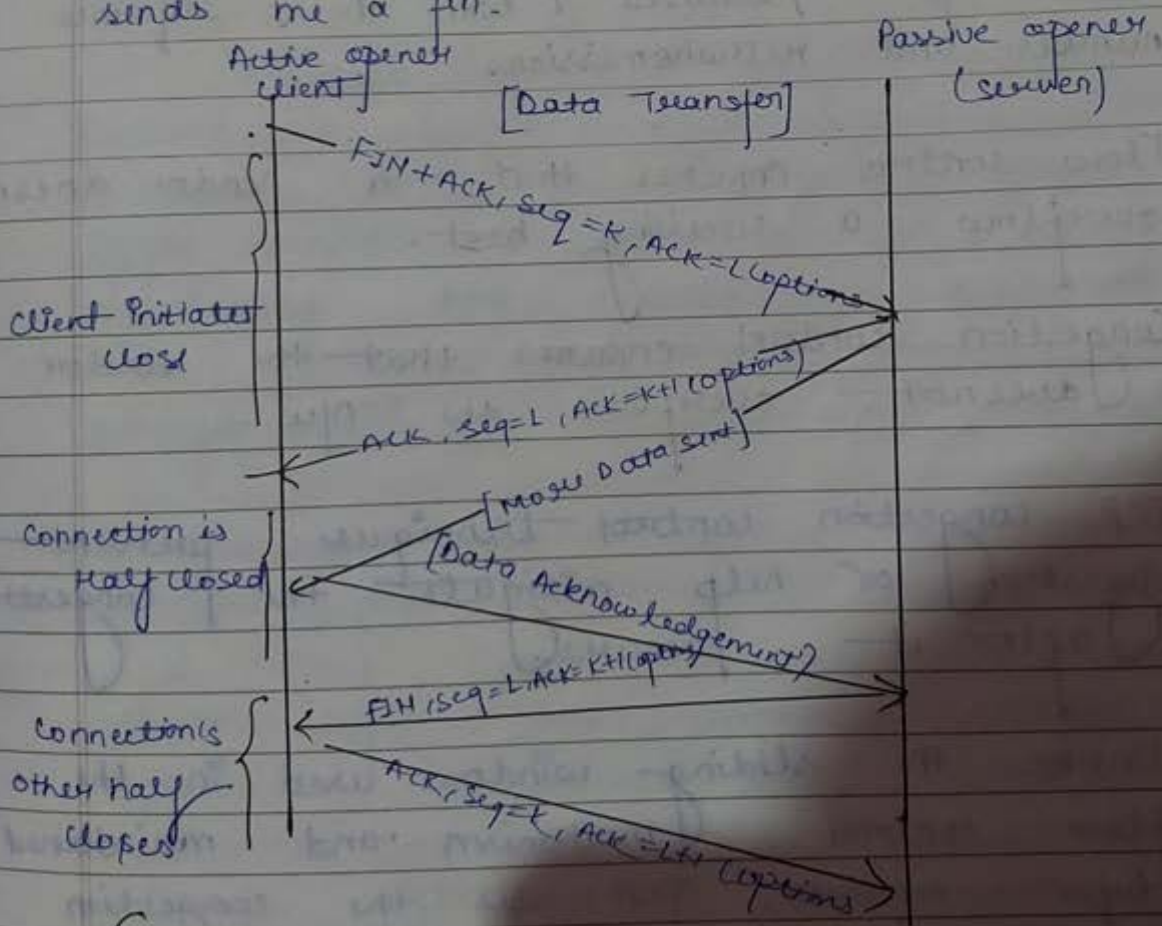 sends me a fin.
Active opener
client]
Passive opener
(server)
[Data Transfer]
FIN+ACK, seq=K, ACK=L(options
Client initiates
close
ACK, seq=L, ACK=K+1 (options)
[More Data sent]
Connection is
Half closed
[Data Acknowledgement)
FIN, seq=L, ACK=K+1(optns)
Connection's
other half
closes
ACK, seq=K, ACK=L+1 (options)